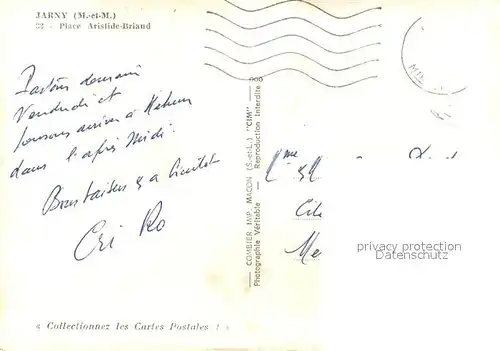 JARNY (M.-et-M.)
33 - Place Aristide-Briand
Partons demain
Vendredi et
pensons arriver à Mehun
dans l'après midi.
Bons baisers à bientôt
COMBIER IMP. MACON (S.-et-L.) "CIM"
Photographie Véritable — Reproduction Interdite
Mme
Me
privacy protection
ansichtskartenpool
« Collectionnez les Cartes Postales ! »